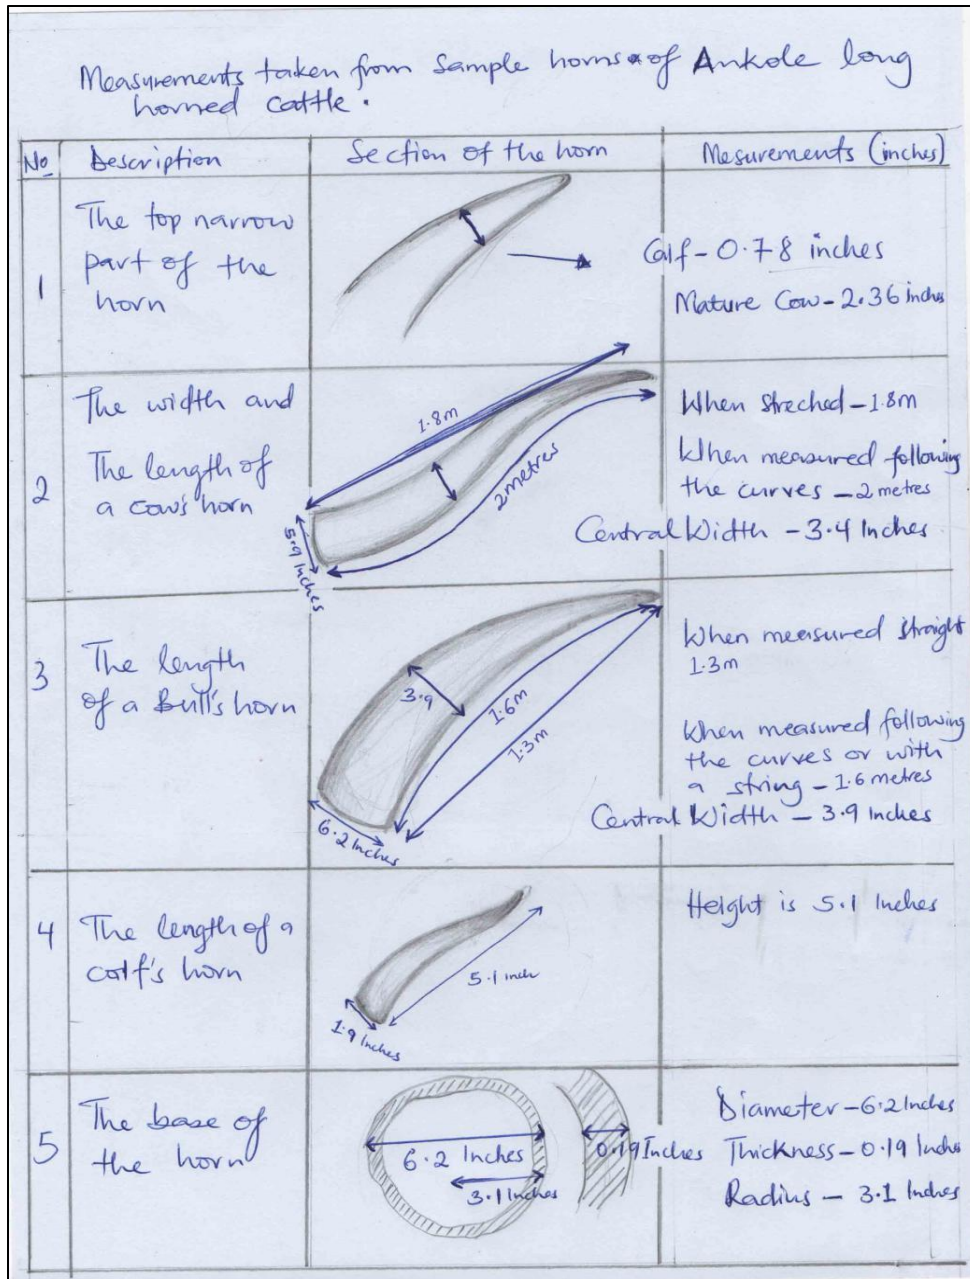 Measurements taken from Sample horns of Ankole long
horned cattle.
No Description Section of the horn Mesurements (inches)
1
The top narrow
part of the
horn
Calf - 0.78 inches
Mature Cow - 2.36 inches
2
The width and
The length of
a cow's horn
1.8m
2 metres
5.9 Inches
When streched - 1.8m
When measured following
the curves - 2 metres
Central Width - 3.4 Inches
3
The length
of a Bull's horn
3.9
1.6m
1.3m
6.2 Inches
When measured straight
1.3m
When measured following
the curves or with
a string - 1.6 metres
Central Width - 3.9 Inches
4
The length of a
calf's horn
5.1 inch
1.9 Inches
Height is 5.1 Inches
5
The base of
the horn
6.2 Inches
3.1 Inches
0.19 Inches
Diameter - 6.2 Inches
Thickness - 0.19 Inches
Radius - 3.1 Inches